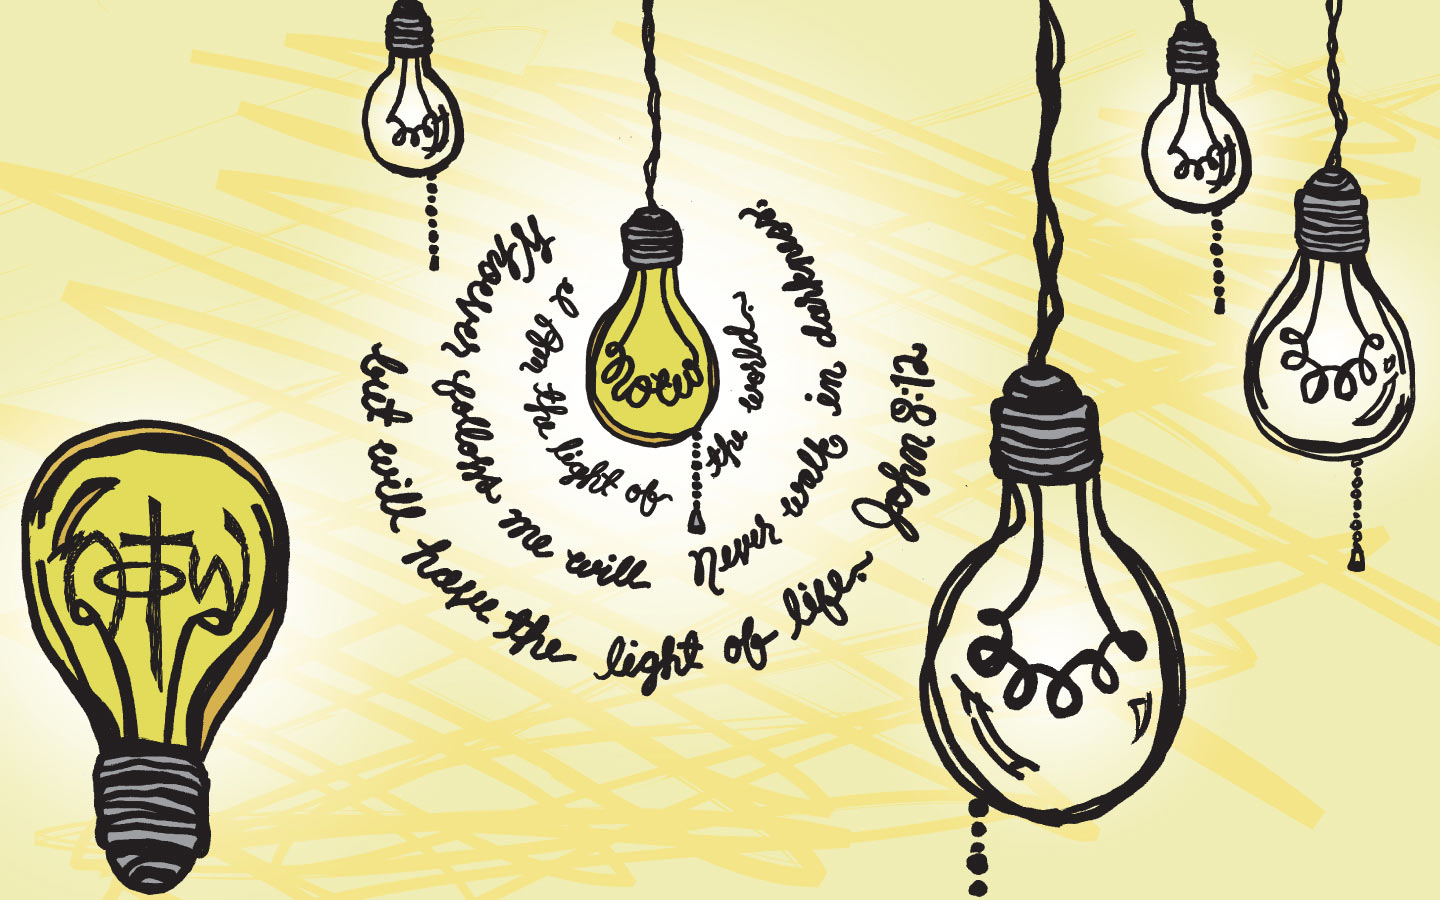 notw
I Am the light of the world.
Whoever follows me will Never walk in darkness,
but will have the light of life. John 8:12
notw